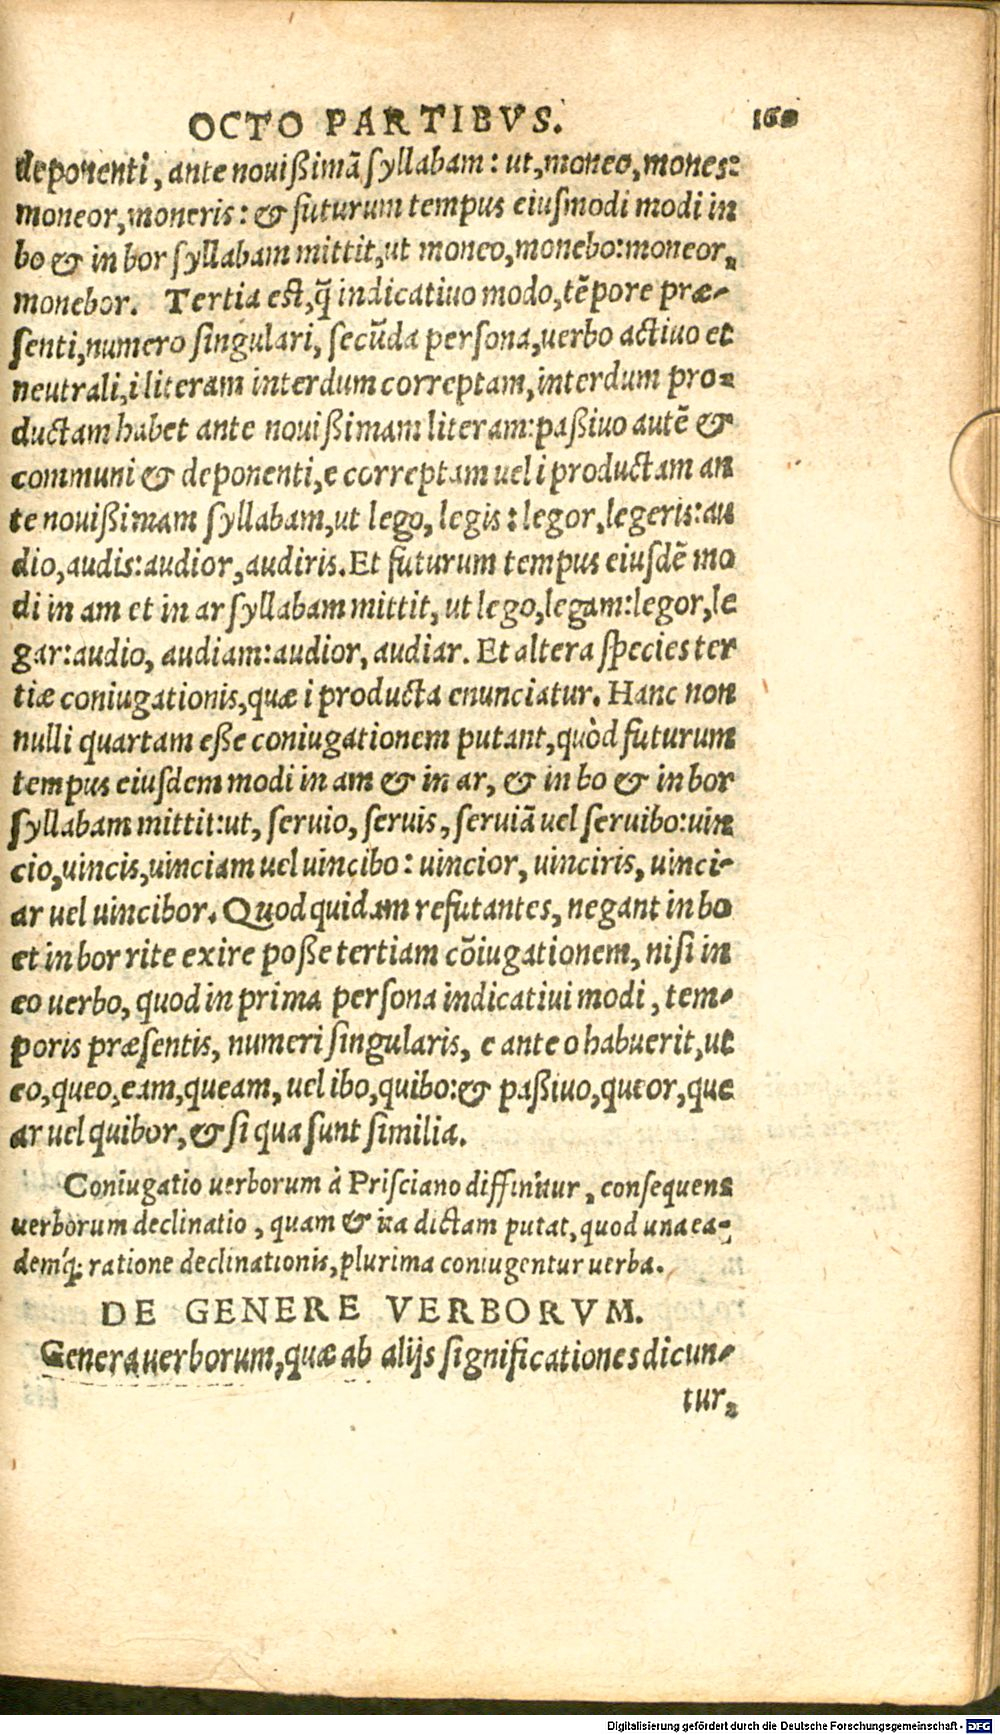 OCTO PARTIBVS. 160
deponenti, ante nouißimā ſyllabam: ut, moneo, mones:
moneor, moneris: & futurum tempus eiuſmodi modi in
bo & in bor ſyllabam mittit, ut moneo, monebo: moneor,
monebor. Tertia eſt, q̄ indicatiuo modo, tēpore præ-
ſenti, numero ſingulari, ſecūda perſona, uerbo actiuo et
neutrali, i literam interdum correptam, interdum pro-
ductam habet ante nouißimam literam: paßiuo autē &
communi & deponenti, e correptam uel i productam an
te nouißimam ſyllabam, ut lego, legis: legor, legeris: au
dio, audis: audior, audiris. Et futurum tempus eiuſdē mo
di in am et in ar ſyllabam mittit, ut lego, legam: legor, le
gar: audio, audiam: audior, audiar. Et altera ſpecies ter
tiæ coniugationis, quæ i producta enunciatur. Hanc non
nulli quartam eße coniugationem putant, quòd futurum
tempus eiuſdem modi in am & in ar, & in bo & in bor
ſyllabam mittit: ut, ſeruio, ſeruis, ſeruiā uel ſeruibo: uin
cio, uincis, uinciam uel uincibo: uincior, uinciris, uinci-
ar uel uincibor. Quod quidam refutantes, negant in bo
et in bor rite exire poße tertiam cōiugationem, niſi in
eo uerbo, quod in prima perſona indicatiui modi, tem-
poris præſentis, numeri ſingularis, e ante o habuerit, ut
eo, queo, eam, queam, uel ibo, quibo: & paßiuo, queor, que
ar uel quibor, & ſi qua ſunt ſimilia.
Coniugatio uerborum à Priſciano diffinitur, conſequens
uerborum declinatio, quam & ita dictam putat, quod una ea-
demq́; ratione declinationis, plurima coniugentur uerba.
DE GENERE VERBORVM.
Genera uerborum, quæ ab alijs ſignificationes dicun-
tur,
Digitalisierung gefördert durch die Deutsche Forschungsgemeinschaft - DFG